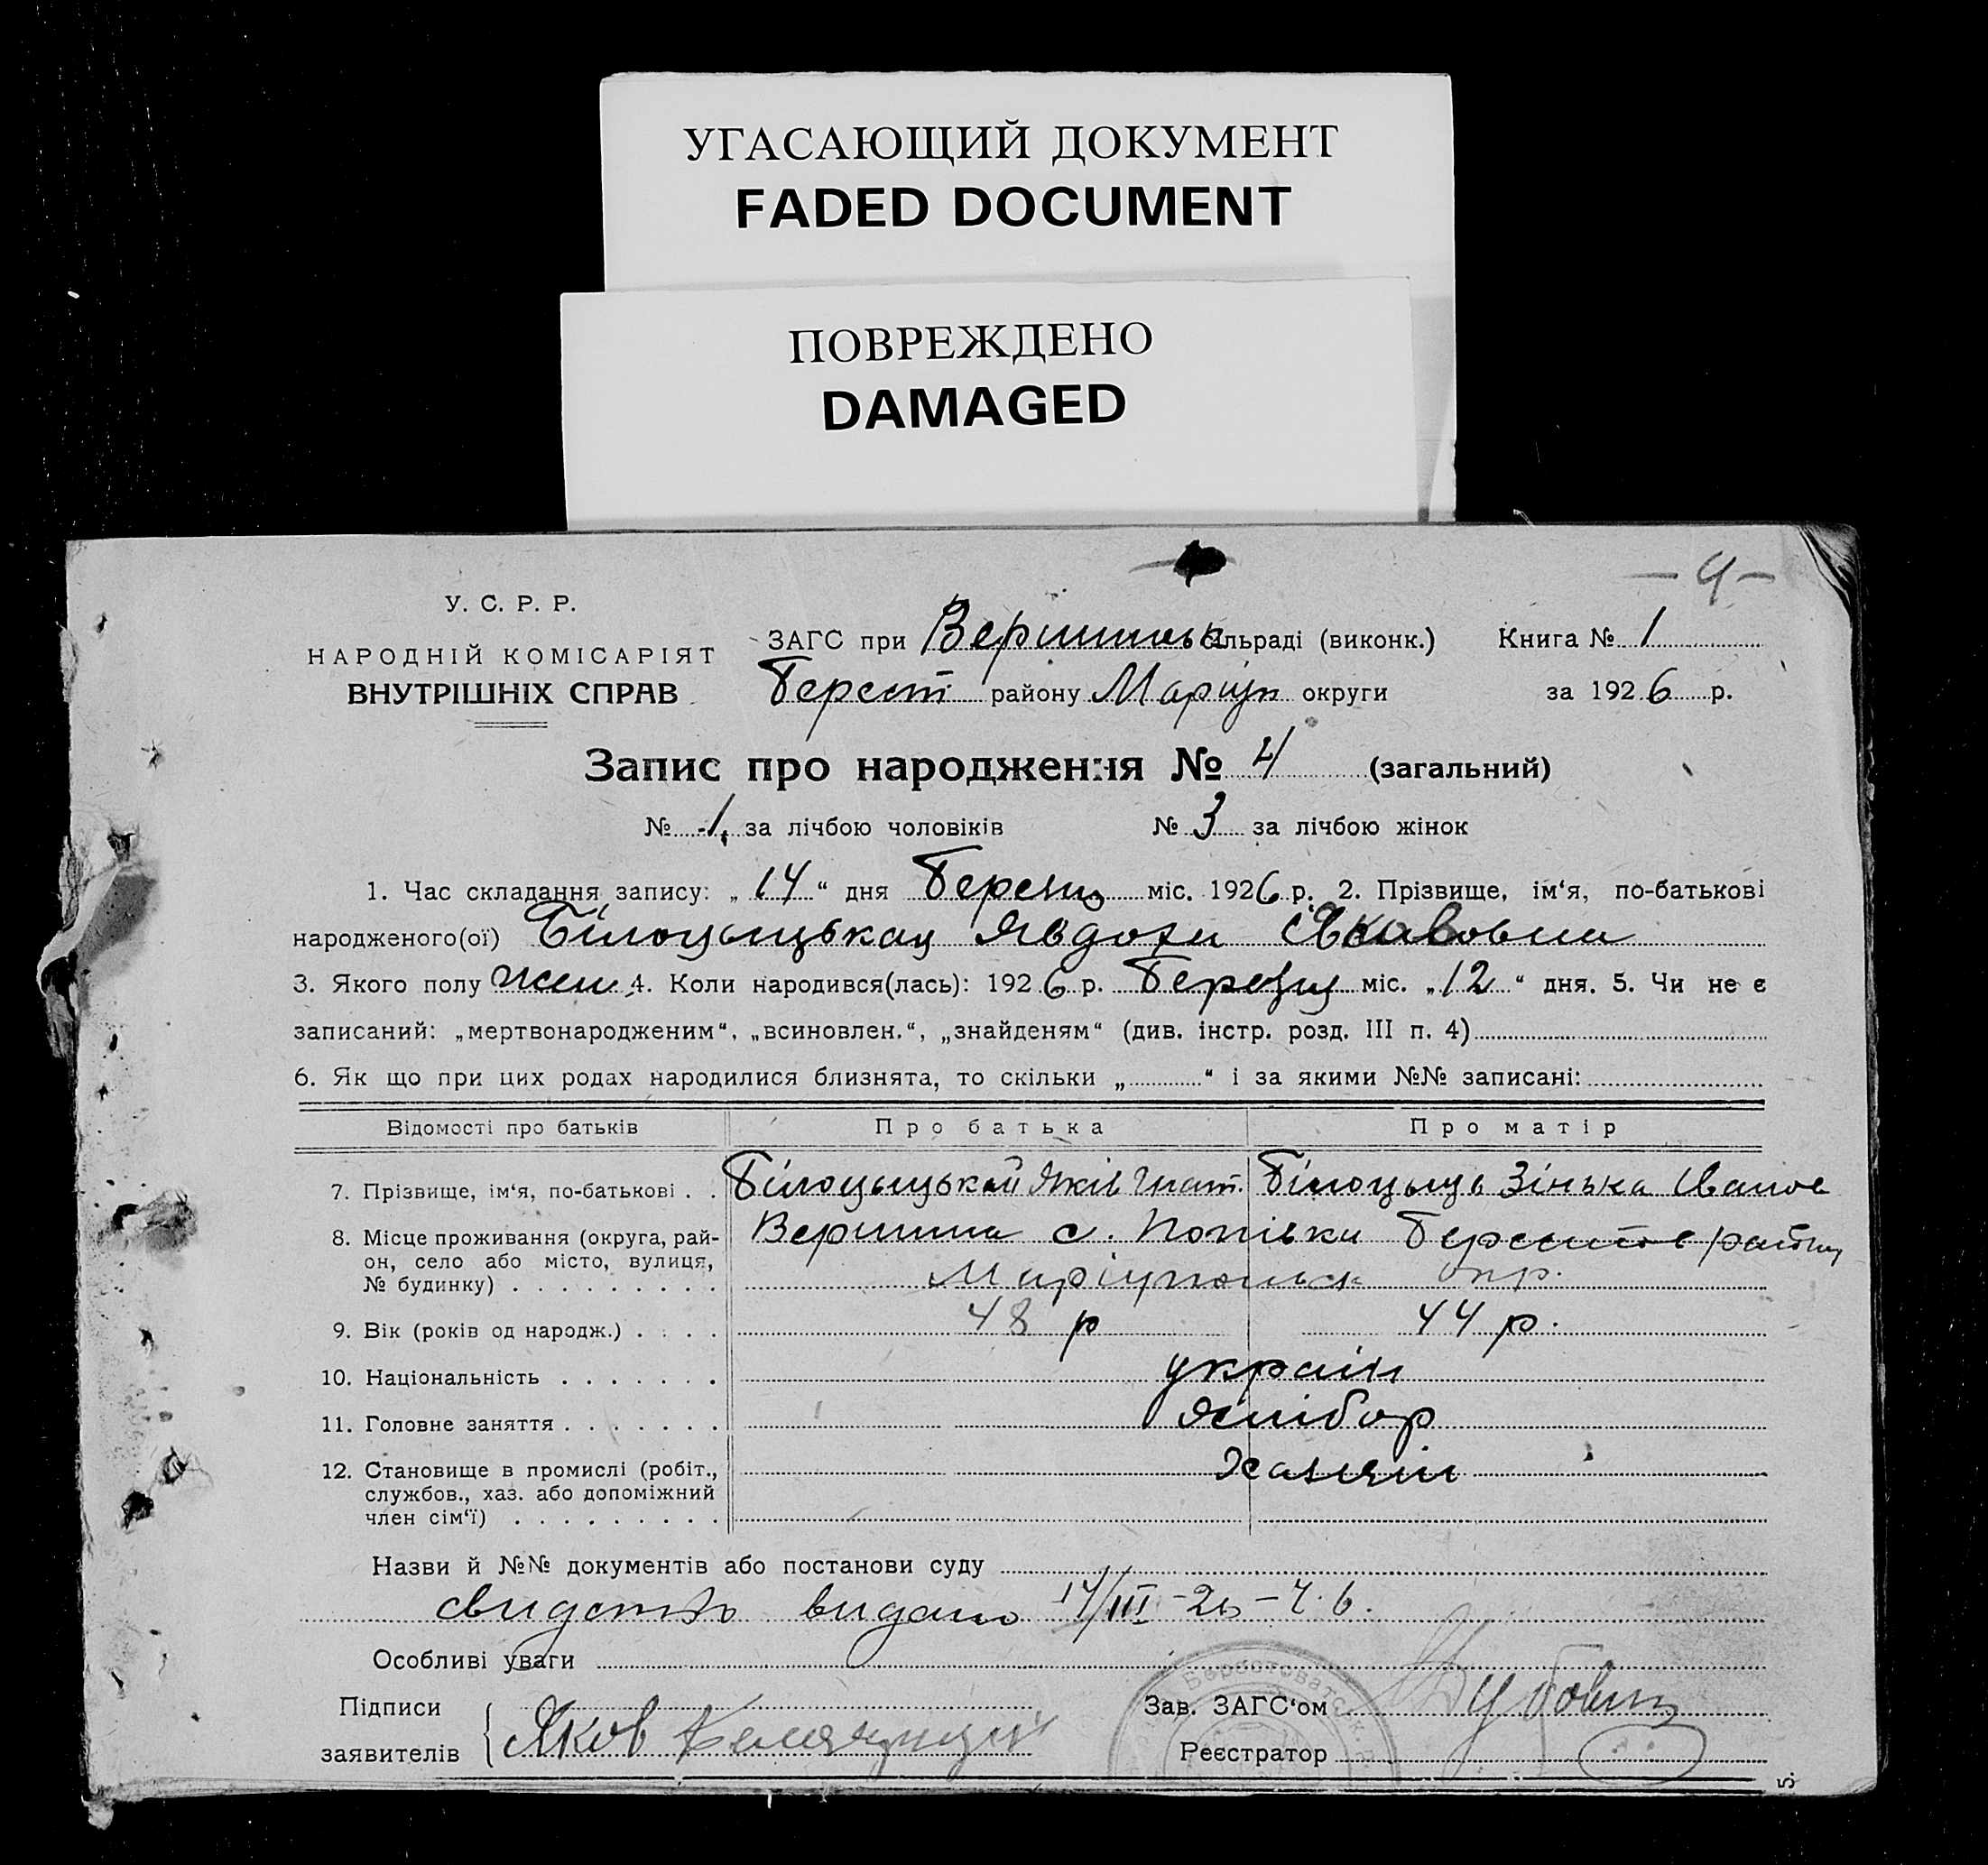 УГАСАЮЩИЙ ДОКУМЕНТ
FADED DOCUMENT
ПОВРЕЖДЕНО
DAMAGED
— 4 —
У. С. Р. Р.
НАРОДНІЙ КОМІСАРІЯТ
ВНУТРІШНІХ СПРАВ
ЗАГС при Вершинськ сільраді (виконк.) Книга № 1
Берест району Маріуп округи за 1926 р.
Запис про народження № 4 (загальний)
№ 1 за лічбою чоловіків № 3 за лічбою жінок
1. Час складання запису: „14“ дня міс. 1926 р. 2. Прізвище, ім‘я, по-батькові
народженого(ої) Білоцьицькая Явдоха Якововна
3. Якого полу жен 4. Коли народився(лась): 1926 р. Березня міс. „12“ дня. 5. Чи не є
записаний: „мертвонародженим“, „всиновлен.“, „знайденям“ (див. інстр. розд. III п. 4)
6. Як що при цих родах народилися близнята, то скільки „ “ і за якими №№ записані:
Відомості про батьків Про батька Про матір
7. Прізвище, ім‘я, по-батькові . . Білоцьицький Яків Гнат. Білоцьиць Зінька Іванов
8. Місце проживання (округа, рай-он, село або місто, вулиця, № будинку) . . . . . . . . . Вершина с. Попівка району
Маріупольск окр.
9. Вік (років од народж.) . . . . 48 р 44 р.
10. Національність . . . . . . . україн
11. Головне заняття . . . . . . . хлібор
12. Становище в промислі (робіт., службов., хаз. або допоміжний член сім‘ї) . . . . . . . . . хазяїн
Назви й №№ документів або постанови суду
видано 14/III -26
Особливі уваги
Підписи
заявителів Яков
Зав. ЗАГС‘ом
Реєстратор
5.